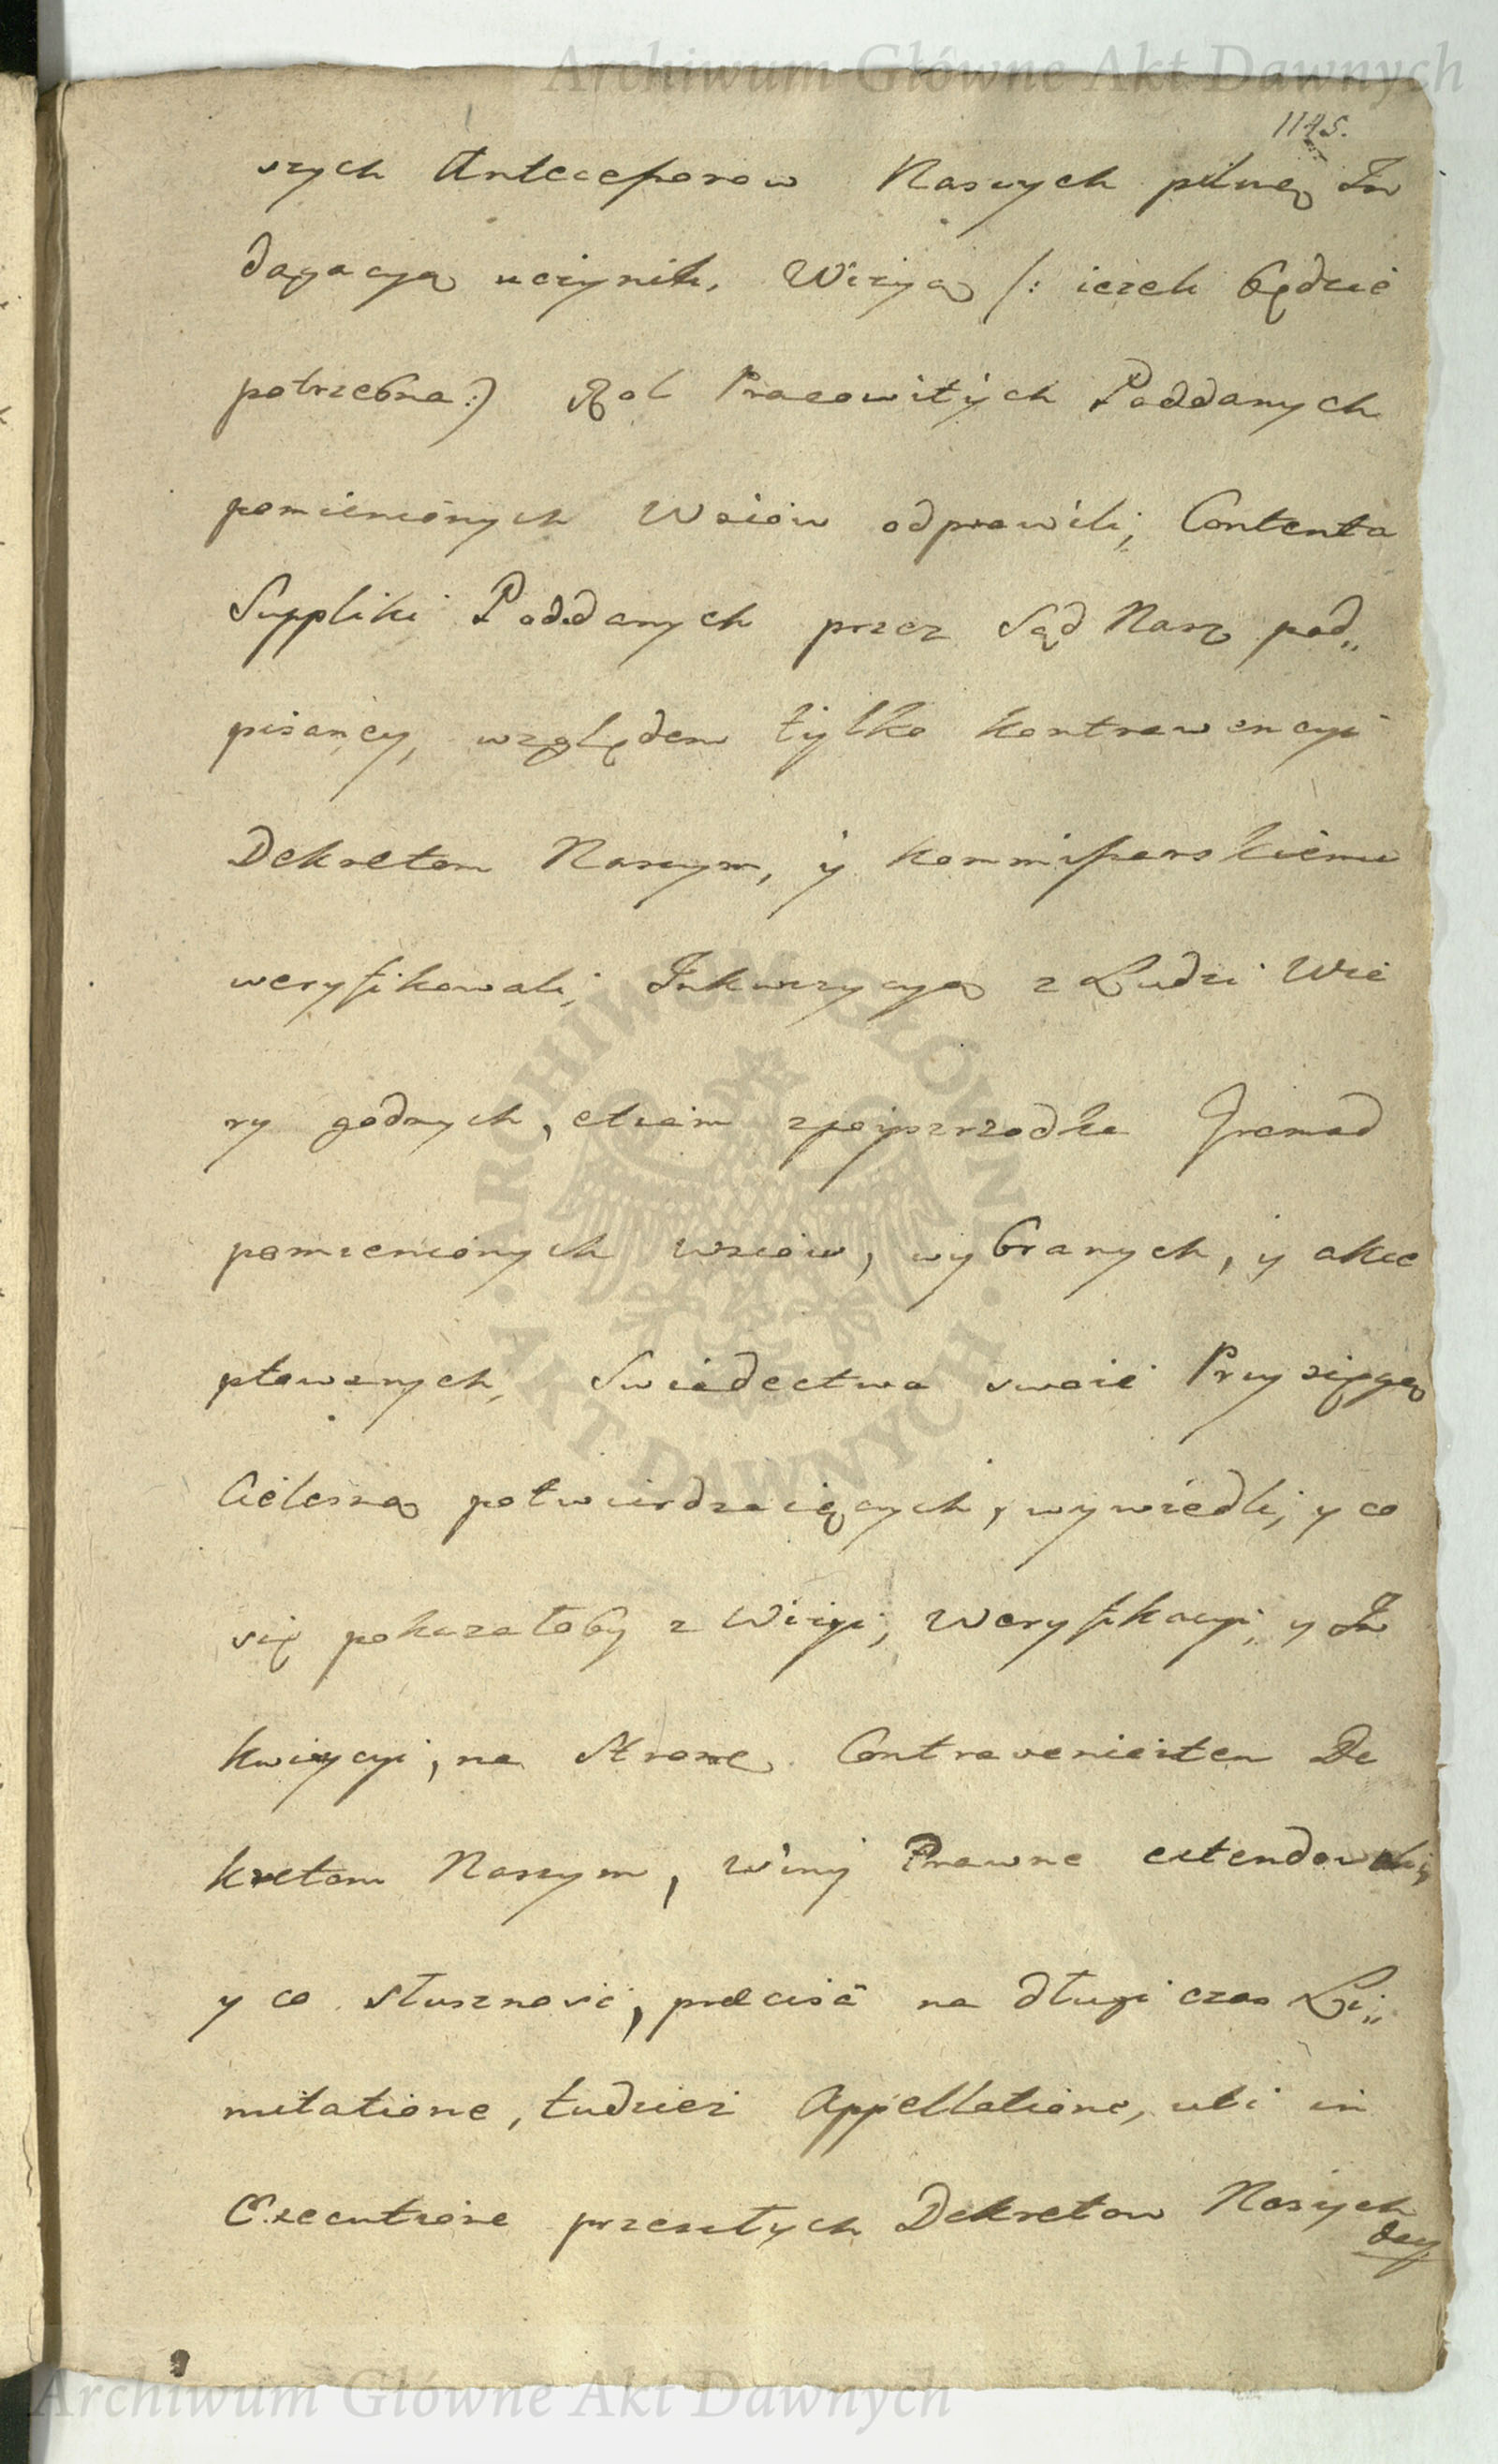 Archiwum Główne Akt Dawnych
1145.
szych Antecessorow Naszych pilną In
dagacyą uczynili, Wizyą /: iezeli będzie
potrzebna :/ Rol Pracowitych Poddanych
pomienionych Wsiow odprawili, Contenta
Suppliki Poddanych przez Sąd Nasz pod„
pisaney, względem tylko kontrawencyi
Dekretom Naszym, y kommissarskiemu
weryfikowali, Inkwizycyą z Ludzi Wia
ry godnych, etiam zpoyszrzodka Gromad
pomienionych wsiow, wybranych, y akce
ptowanych, Swiadectwa swoie Przysięgą
Cielesną potwierdzaiących, wywiedli, y co
się pokazałoby z Wizyi, Weryfikacyi, y In
kwizycyi, na Stronę Contravenientem De
kretom Naszym, Winy Prawne extendowali,
y co słusznosć, precisa na długi czas Li„
mitatione, tudziez Appellatione, ubi in
Executione przeszłych Dekretow Naszych
ARCHIWUM GŁÓWNE AKT DAWNYCH
Archiwum Główne Akt Dawnych